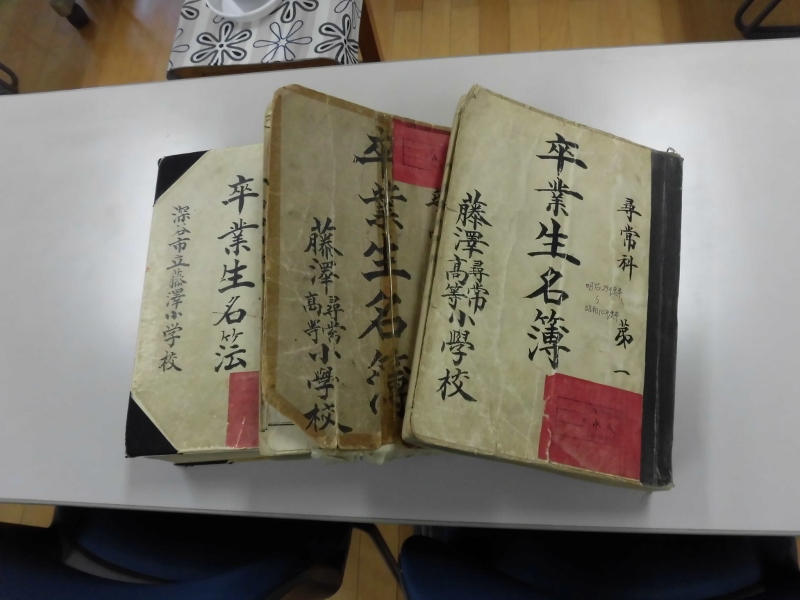 尋常科 第一
卒業生名簿
藤澤尋常高等小學校
卒業生名簿
藤澤尋常高等小學校
卒業生名簿
深谷市立藤澤小学校